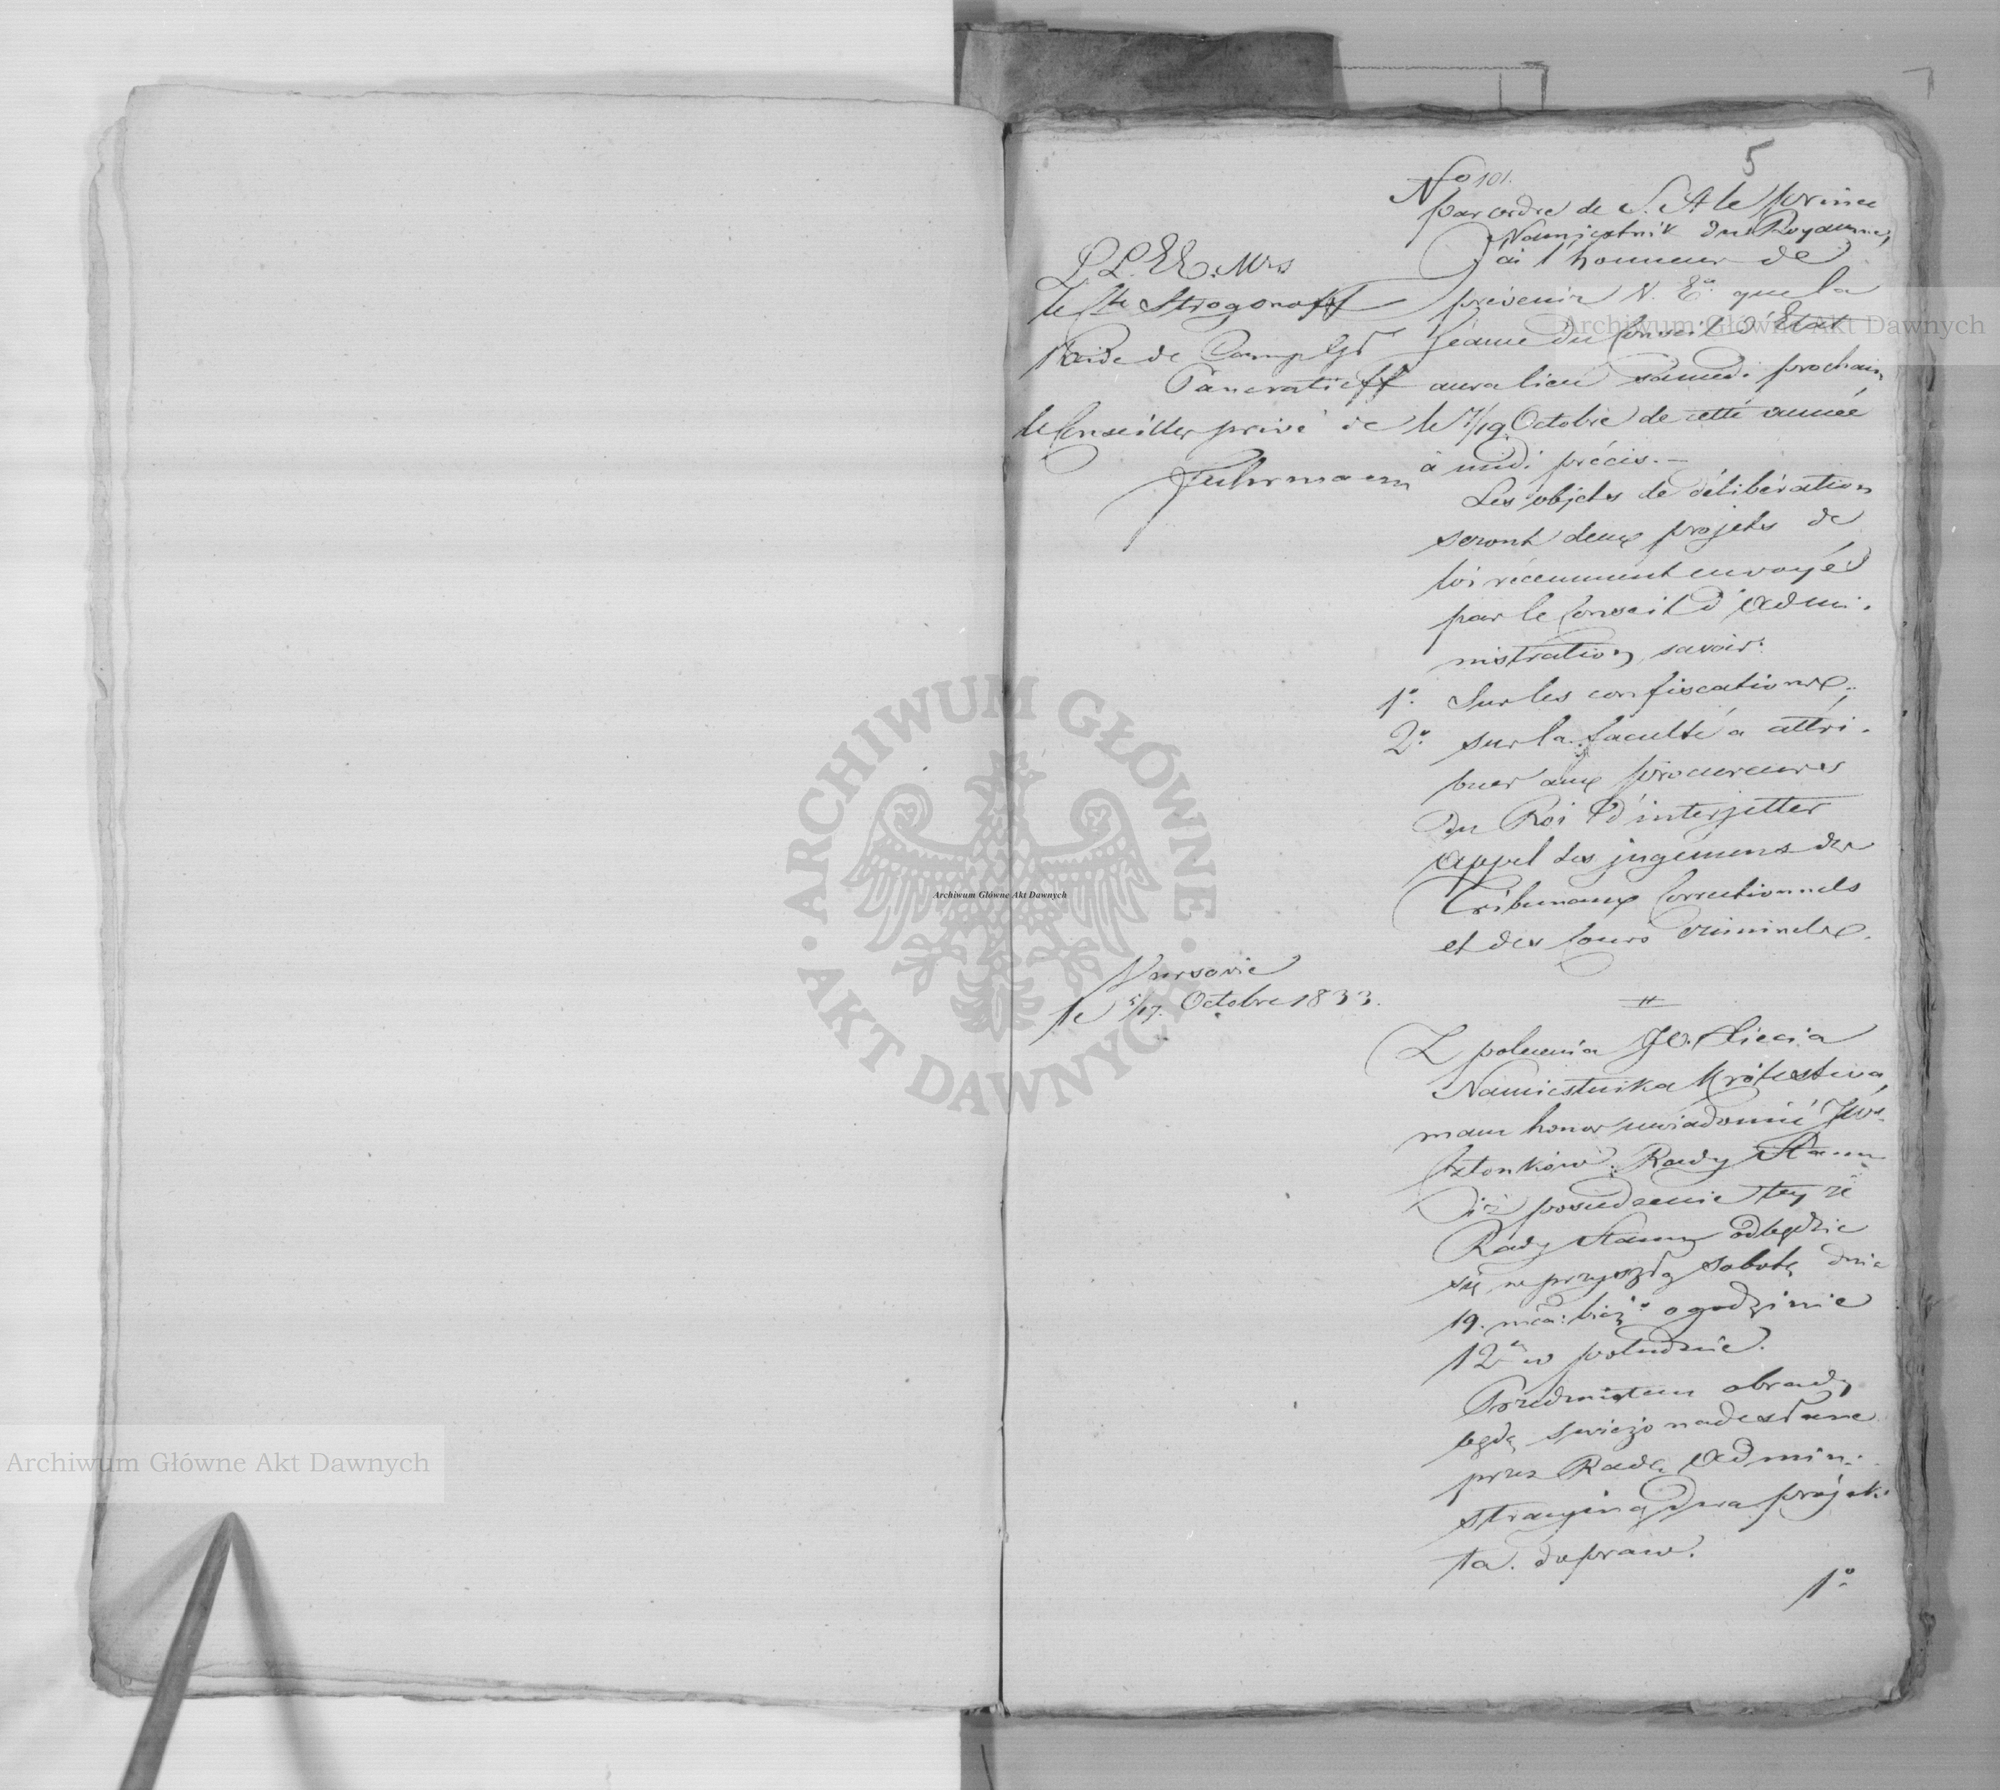 5
No 101.
Par ordre de S. A le prince
Namiestnik du Royaume,
J'ai l'honneur de
prévenir V. E. que la
séance du Conseil d'Etat
aura lieu samedi prochain
le 7/19 Octobre de cette année
à midi précis. —
Les objets de délibération
seront deux projets de
loi récemment envoyés
par le Conseil d'Admi-
nistration, savoir:
1o. Sur les confiscations;
2o. sur la faculté à attri-
buer aux procureurs
du Roi d'interjetter
appel des jugemens des
Tribunaux Correctionnels
et des Cours criminelles.
L.L.E.E. Mrs
le Cte Strogonoff
l'Aide de Camp Gl
Pancratieff
le Conseiller privé de
Fuhrmann
Varsovie
le 5/17. Octobre 1833.
Z polecenia JO. Xiecia
Namiestnika Królestwa,
mam honor uwiadomić JW.
Członków Rady Stanu
iż posiedzenie tey że
Rady Stanu odbędzie
się w przyszłą sobotę dnia
19. mca: bież: o godzinie
12 w południe.
Przedmiotem obrady
będą swieżo nadesłane
przez Radę Admini-
stracyiną dwa projek-
ta do praw.
1o
ARCHIWUM GŁÓWNE
AKT DAWNYCH
Archiwum Główne Akt Dawnych
Archiwum Główne Akt Dawnych
Archiwum Główne Akt Dawnych